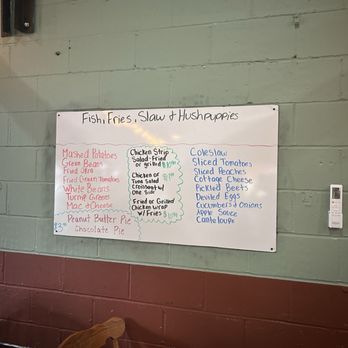 Fish, Fries, Slaw & Hushpuppies
Mashed Potatoes
Green Beans
Fried Okra
Fried Green Tomatoes
White Beans
Turnip Greens
Mac & Cheese
Peanut Butter Pie
Chocolate Pie
Chicken Strip
Salad - Fried
or grilled
Chicken or
Tuna Salad
Croissant w/
One Side
Fried or Grilled
Chicken Wrap
w/ Fries
Coleslaw
Sliced Tomatoes
Sliced Peaches
Cottage Cheese
Pickled Beets
Deviled Eggs
Cucumbers & Onions
Apple Sauce
Canteloupe